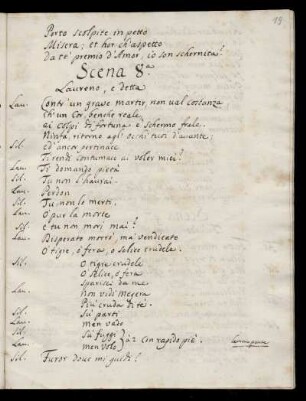 19
Porto scolpite in petto
Misera; et hor ch'aspetto
da te premio d'Amor, io son schernita?
Scena 8.a
Laureno, e detta
Lau. Contr'un grave martir, non val costanza
Ch'un Cor, benche reale
ai colpi di fortuna è schermo frale.
Ninfa, ritorno agl'occhi tuoi d'avante;
Sil. Ed'ancor pertinace
Ti rendi contumace ai voler miei?
Lau. Ti domando pietà
Sil. Tu non l'haurai.
Lau. Perdon
Sil. Tu non lo merti.
Lau. O pur la morte
Sil. E tu non mori, mai?
Lau. Disperato morrò, ma vendicato
O tigre, ò fera, o Selice crudele.
Sil. O tigre crudele
O Selice, ò fera
Sparisci da me.
Lau. Non vidi megera
Più cruda di te.
Sil. Sù parti
Lau. men vado
Sil. Sù fuggi
Lau. men volo } à 2. Con rapido piè.
Sil. Furor doue mi guidi?